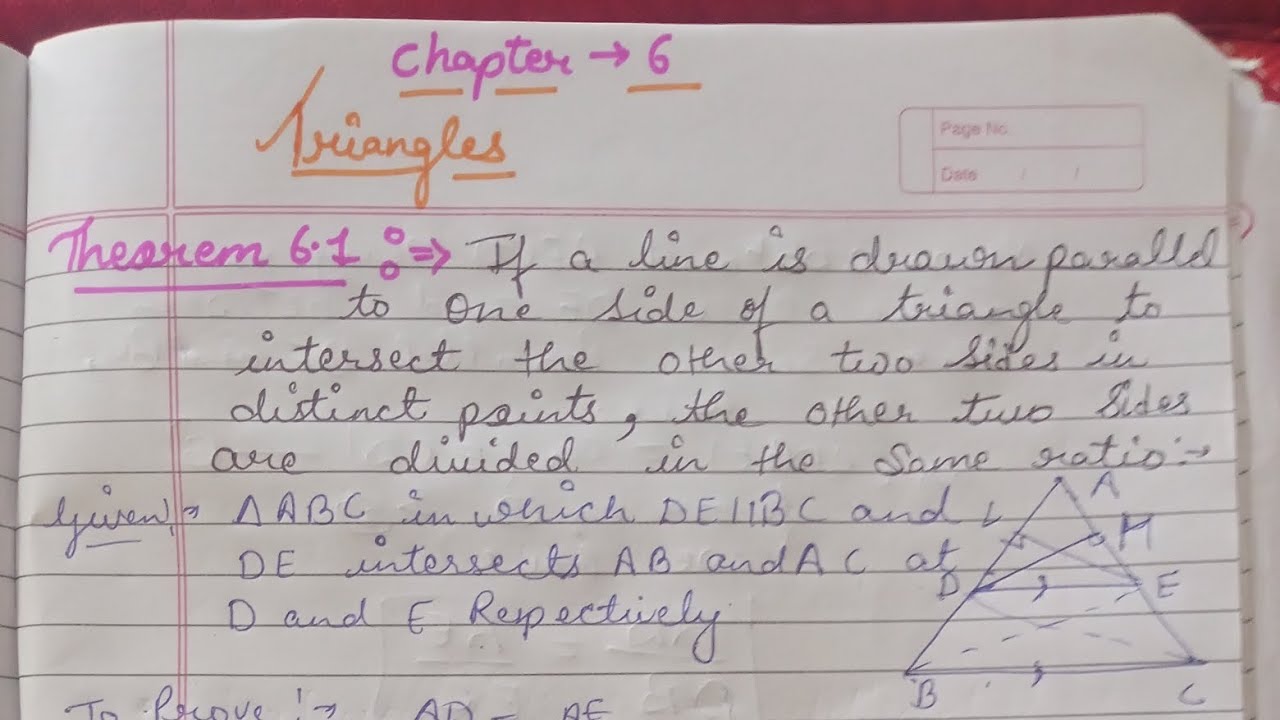 Chapter → 6
Triangles
Page No.
Date / /
Theorem 6.1 :⇒ If a line is drawn parallel
to one side of a triangle to
intersect the other two sides in
distinct points, the other two sides
are divided in the same ratio :→
Given :→ △ABC in which DE||BC and
DE intersects AB and AC at
D and E Respectively
A
L
M
D
E
B
C
To Prove :→ AD = AE